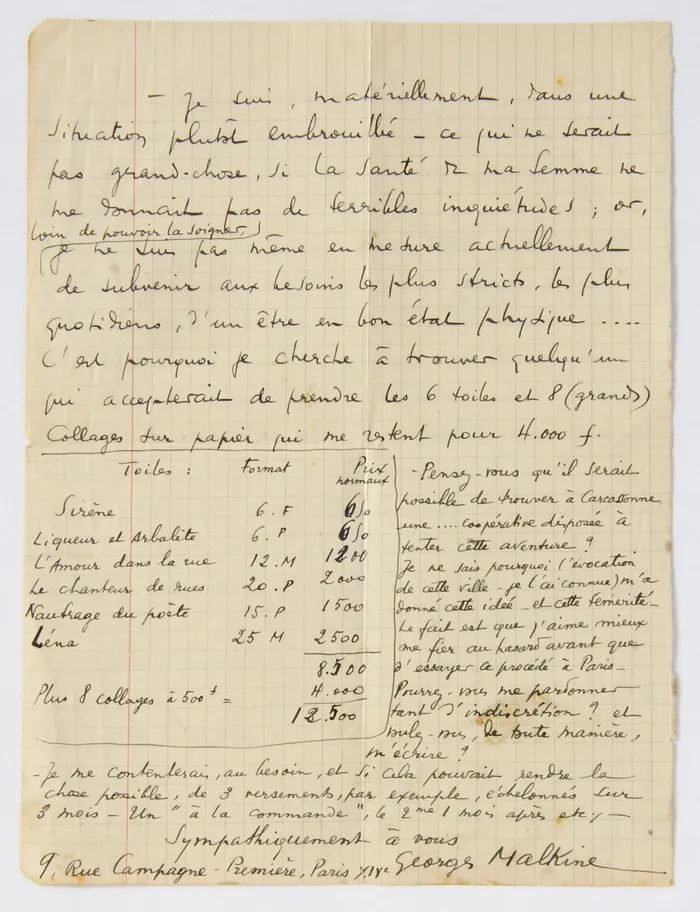 — Je suis, matériellement, dans une
situation plutôt embrouillée — ce qui ne serait
pas grand-chose, si la santé de ma femme ne
me donnait pas de terribles inquiétudes ; or,
loin de pouvoir la soigner,
je ne suis pas même en mesure actuellement
de subvenir aux besoins les plus stricts, les plus
quotidiens, d'un être en bon état physique ....
C'est pourquoi je cherche à trouver quelqu'un
qui accepterait de prendre les 6 toiles et 8 (grands)
Collages sur papier qui me restent pour 4.000 f.
Toiles : Format Prix normaux
Sirène 6. F 650
Liqueur et Arbalète 6. P 650
L'Amour dans la rue 12. M 1200
Le chanteur de rues 20. P 2000
Naufrage du poète 15. P 1500
Léna 25 M 2500
8.500
Plus 8 collages à 500f = 4.000
12.500
- Pensez-vous qu'il serait
possible de trouver à Carcassonne
une .... coopérative disposée à
tenter cette aventure ?
Je ne sais pourquoi l'évocation
de cette ville - je l'ai connue) m'a
donné cette idée - et cette témérité -
Le fait est que j'aime mieux
me fier au hasard avant que
d'essayer ce procédé à Paris -
Pourrez-vous me pardonner
tant d'indiscrétion ? et
voulez-vous, de toute manière,
m'écrire ?
- Je me contenterais, au besoin, et si cela pouvait rendre la
chose possible, de 3 versements, par exemple, échelonnés sur
3 mois - Un "à la commande", le 2me 1 mois après etc, —
Sympathiquement à vous
Georges Malkine
9, Rue Campagne-Première, Paris XIVe